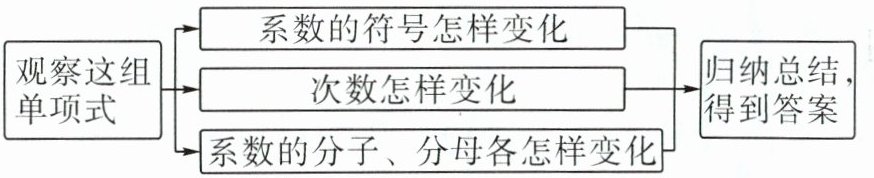 观察这组
单项式
系数的符号怎样变化
次数怎样变化
系数的分子、分母各怎样变化
归纳总结，
得到答案